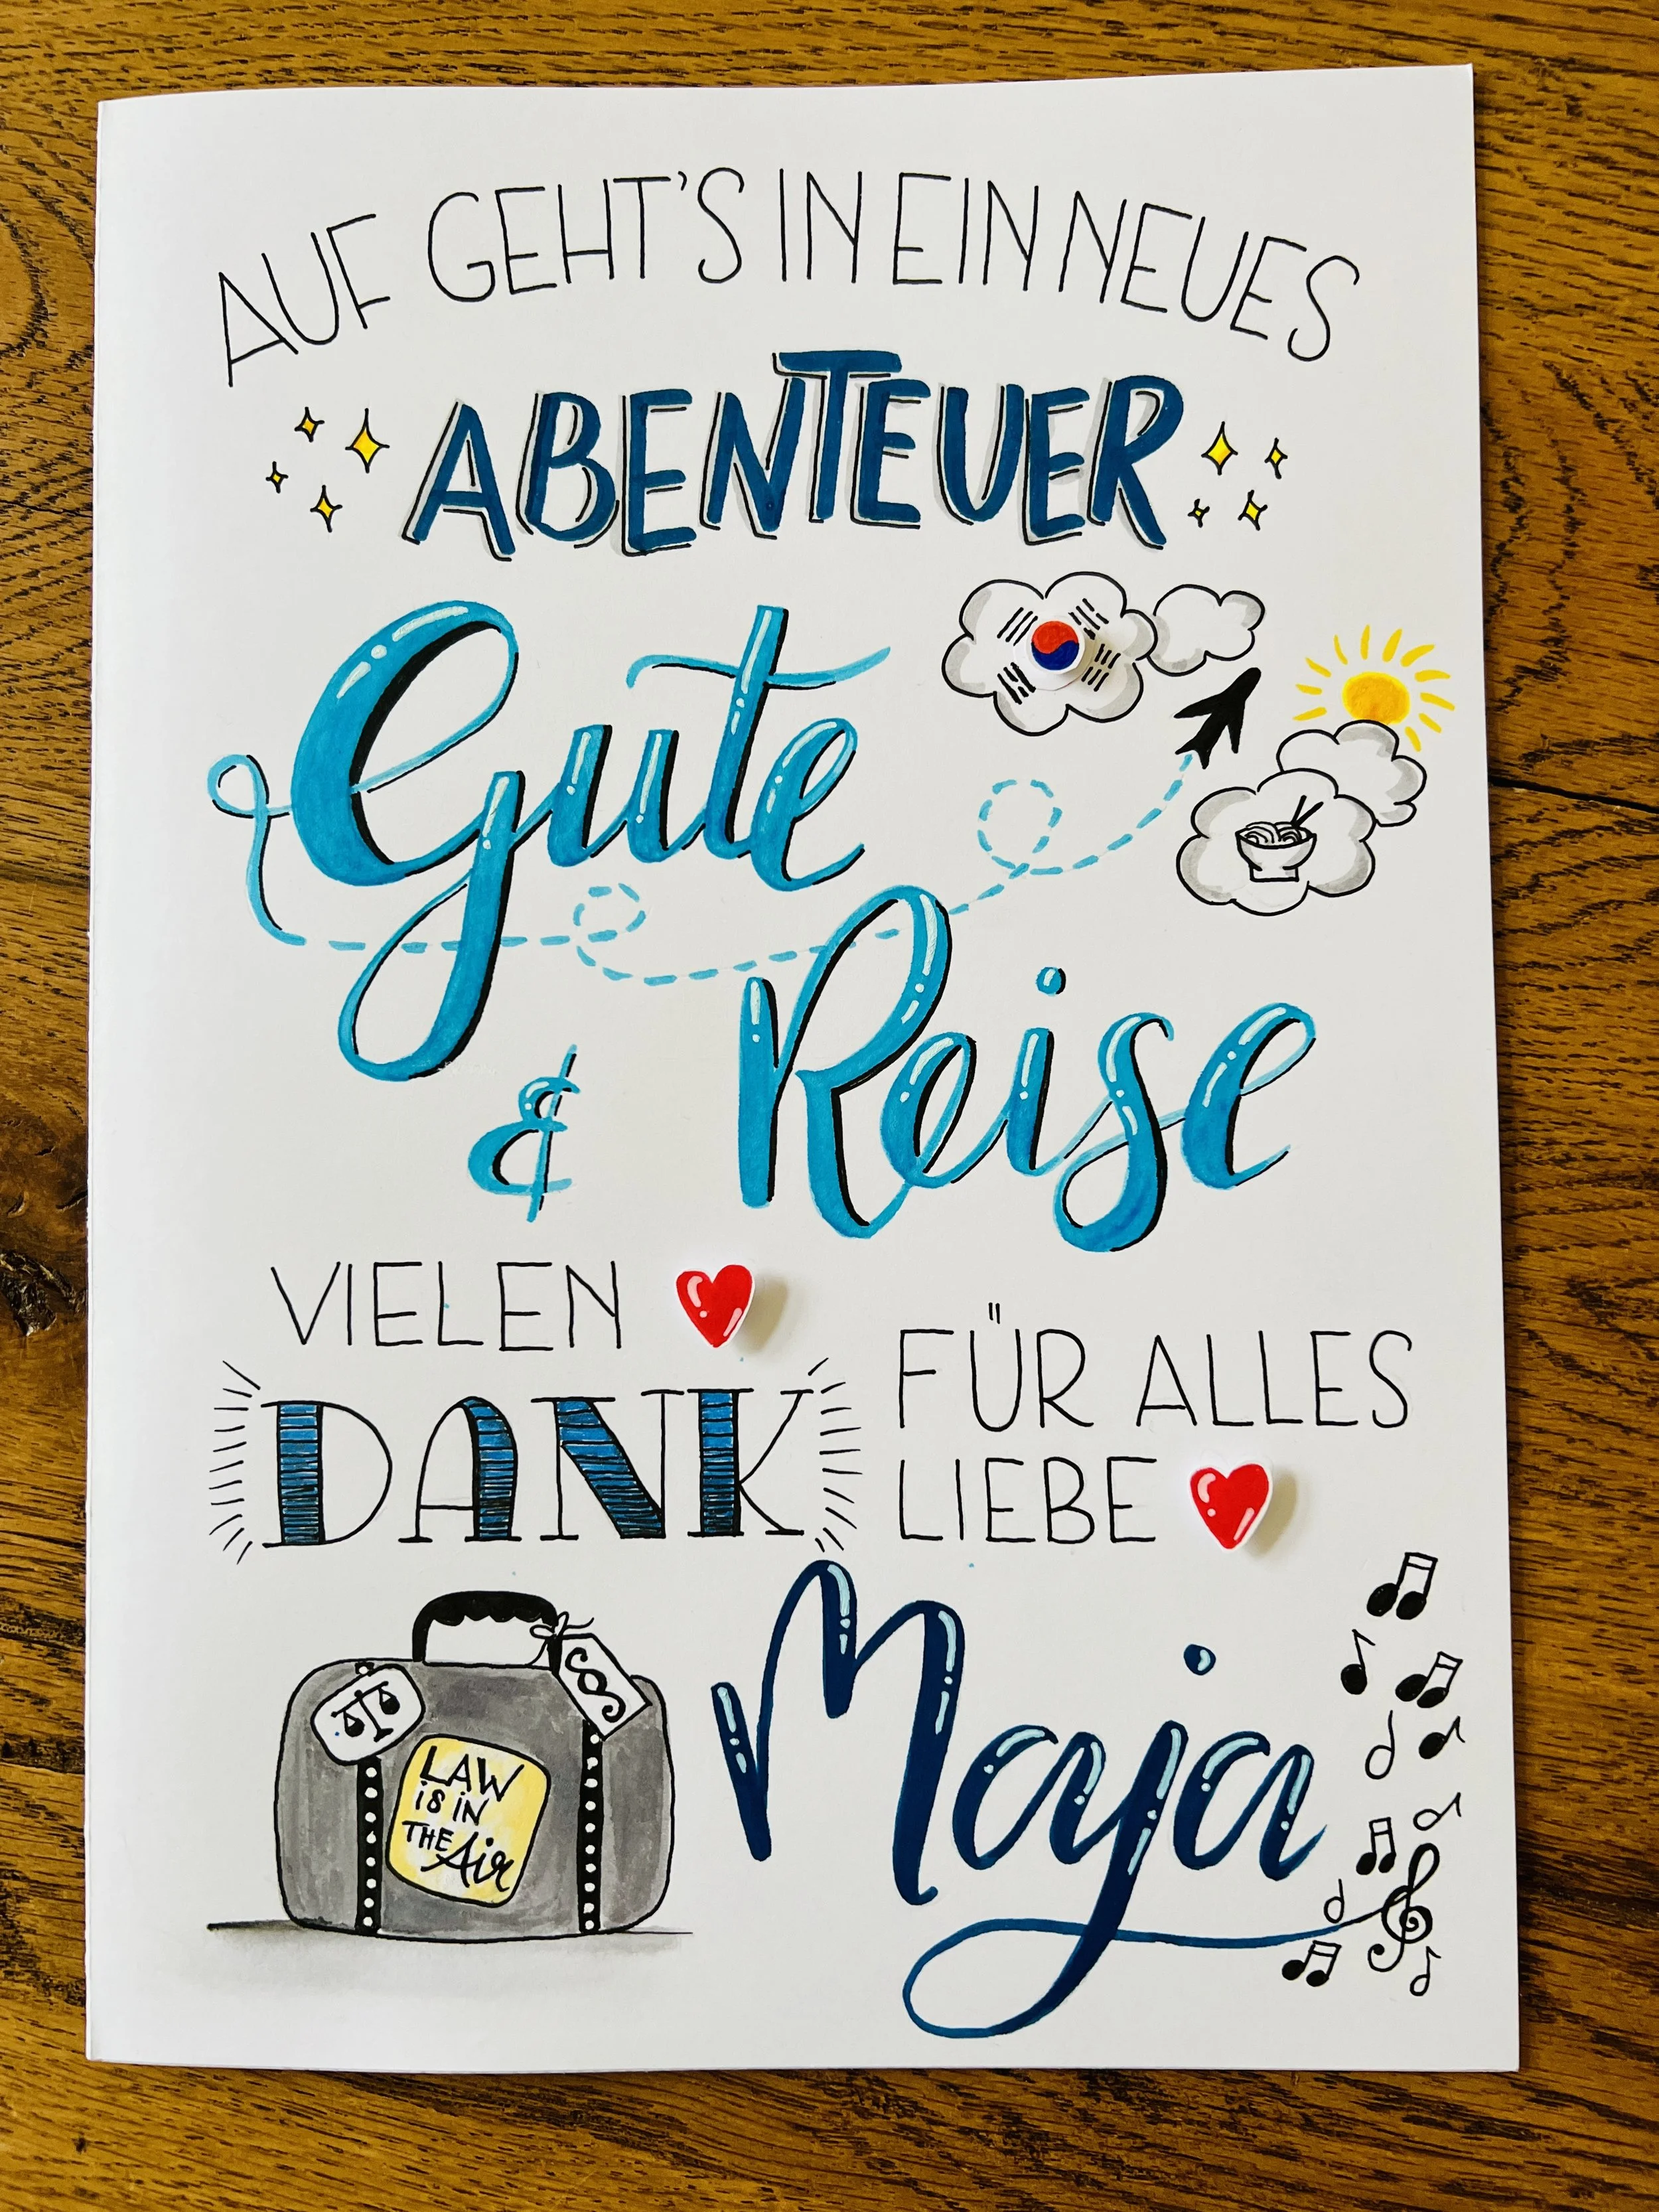 AUF GEHT'S IN EIN NEUES
ABENTEUER
Gute
& Reise
VIELEN
DANK
FÜR ALLES
LIEBE
Maja
§
LAW
is iN
THE Air